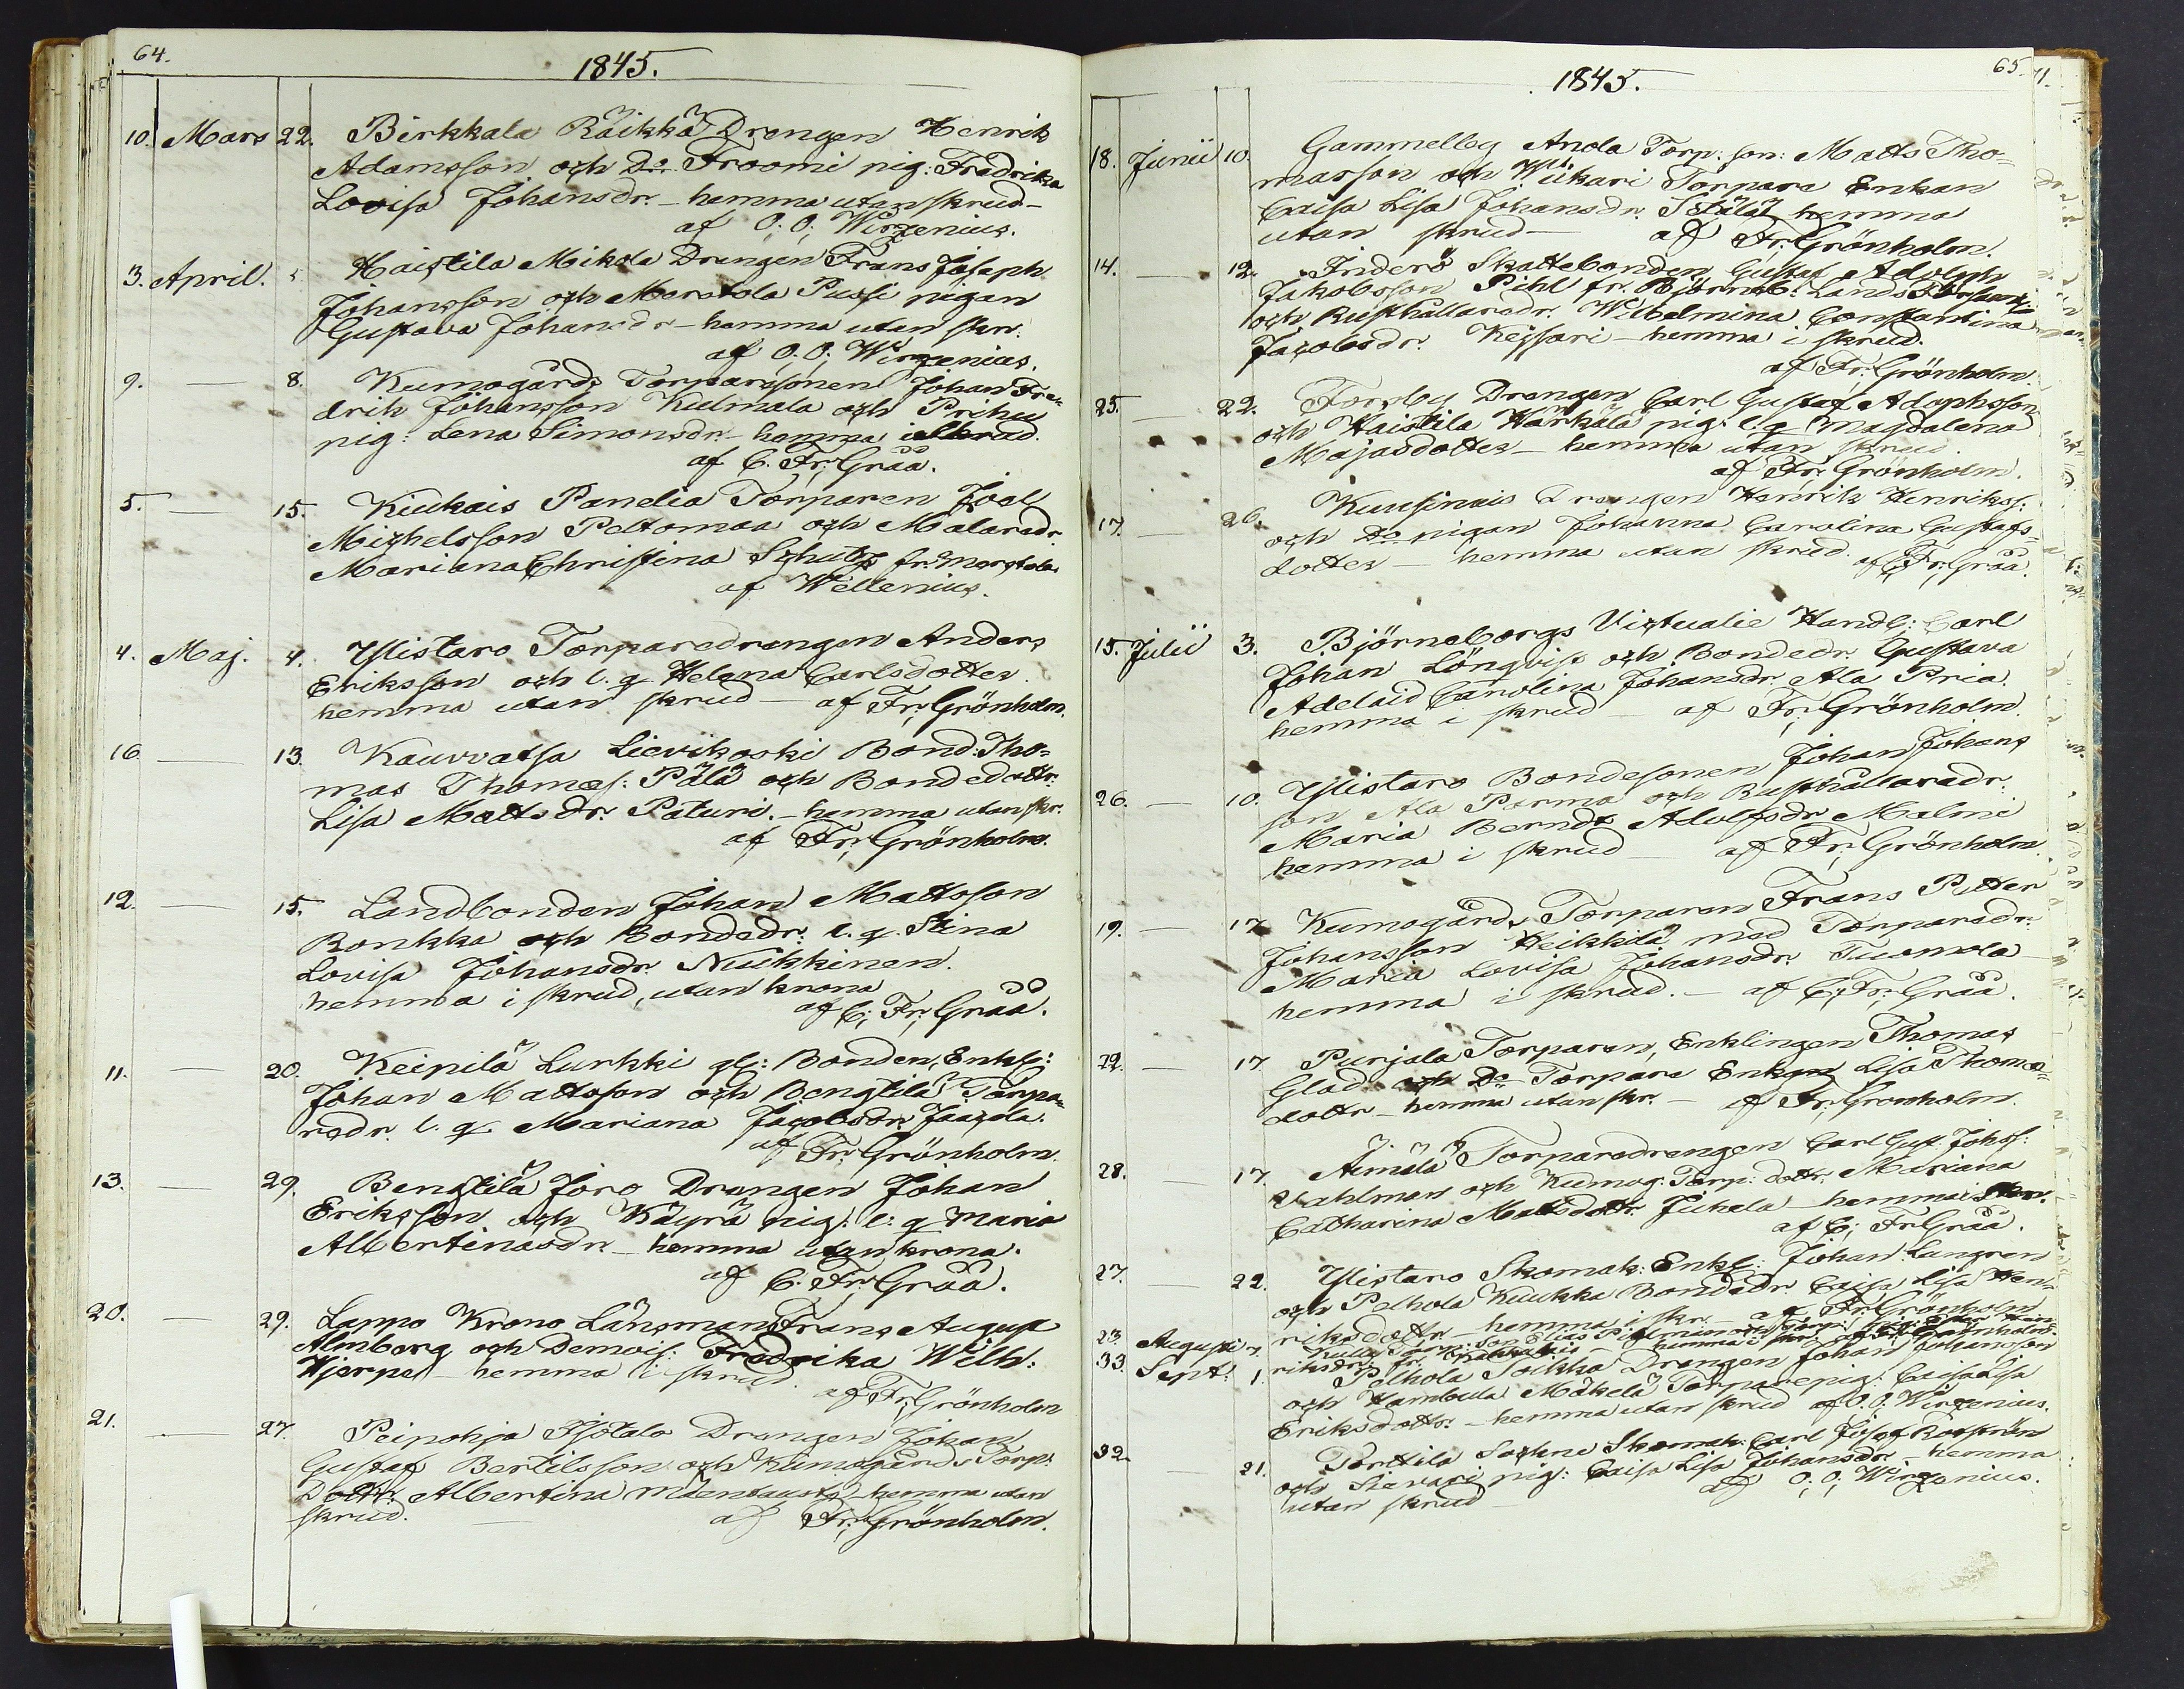 64.
1845.
10. Mars 22. Birkkala Räikkä Drengen Henrik
Adamsson och Do Froomi pig: Fredrika
Lovisa Johansdr. - hemma utan skrud -
af O: O; Wirzenius.
3. April. 5 Haistila Mikola Drengen Frans Joseph
Johansson och Marstola Pussi pigan
Gustava Johansdr - hemma utan skr.
af O. O; Wirzenius.
9. — 8. Kumogårds Torparesonen Johan Fre-
drik Johansson Kulmala och Prihu
pig: Lena Simonsdr. - hemma i skrud.
af C. Fr; Gråå.
5. — 15. Kiukais Panelia Torparen Joel
Michelsson Peltomaa och Malaredr.
Mariana Christina Schultz fr. Marstola
af Wellenius.
4. Maj. 4. Ylistaro Torparedrengen Anders
Eriksson och l. q Helena Carlsdotter.
hemma utan skrud — af Fr; Grönholm.
16 — 13. Kauvvatsa Lievikoski Bond: Tho=
mas Thomæs: Pälä och Bondedottr:
Lisa Mattsdr. Paturi. - hemma utan skr.
af Fr; Grönholm.
12. — 15. Landbonden Johan Mattsson
Ronkka och Bondedr. l. q. Stina
Lovisa Johansdr. Nuikkinen.
hemma i skrud, utan krona
af C; Fr; Gråå.
11. — 20. Keipilä Lurkki gl: Bonden, Enkl:
Johan Mattsson och Bengtilä Torpa=
redr. l. q. Mariana Jacobsdr. Jaazola.
af Fr: Grönholm.
13. — 29. Bengtilä Joro Drengen Johan
Eriksson och Käyrä pig: l: q Maria
Albertinasdr - hemma utan krona.
af C. Fr; Gråå.
20. — 29. Lappo Krono Länsman Frans August
Almberg och Demois: Fredrika Wilh:
Hjerpe - hemma i skrud.
af Fr; Grönholm
21. — 27. Peipohja Isotalo Drengen Johan
Gustaf Bertilsson och Kumogårds Torp:
dottr. Albertina Mäentausta - hemma utan
skrud. — af Fr; Grönholm.
65.
1845.
18. Junii 10. Gammelby Anola Torp: son: Matts Tho=
masson och Wiikari Torpare Enkan
Caisa Lisa Johansdr. hemma
utan skrud — af Fr; Grönholm.
14. — 12. Inderö Skattebonden Gustaf Adolph
Jakobsson Pihl fr. Björneb: Lands
och Rusthållaredr. Wilhelmina Constantina
Jacobsdr. Keisari - hemma i skrud.
af Fr; Grönholm.
25. — 22. Forsby Drengen Carl Gustaf Adophsson
och Haistila Härkälä pig: l. q Magdalena
Majasdotter - hemma utan skrud.
af Fr; Grönholm.
17. — 26. Kuusinais Drengen Henrik Henrikss:
och Do pigan Johanna Carolina Gustafs=
dotter — hemma utan skrud. af C; Fr; Gråå.
15. Julii 3. Björneborgs Victualie Handl: Carl
Johan Löngvist och Bondedr. Gustava
Adelaid Carolina Johansdr. Ala Pria.
hemma i skrud — af Fr; Grönholm.
26. — 10. Ylistaro Bondesonen Johan Johans
son Ala Parma och Rusthållaredr.
Maria Berndt Adolfsdr Malmi
hemma i skrud — af Fr; Grönholm
19. — 17. Kumogårds Torparen Frans Petter
Johansson Heikkilä med Torparedr.
Maria Lovisa Johansdr. Tuomola
hemma i skrud. — af C; Fr: Gråå.
22. — 17 Purjala Torparen, Enklingen Thomas
Glad och Do Torpare Enkan Lisa Thomæ=
dottr - hemma utan skr. — af Fr; Gronholm.
28. — 17. Äimälä Torparedrengen Carl Gust. Johss:
och Kumog: Torp: dottr. Mariana
Catharina Mattsdottr. Juhala - hemma i skr.
af C; Fr Gråå.
27. — 22. Ylistaro Skomak: Enkl: Johan Lungren
och Pelhola Kuukka Bondedr. Caisa Lisa Hen=
riksdottr - hemma i skr. — af Fr: Grönholm
23 Augusti 7. Torp: son Elias
riksdr. fr. — hemma i skr. af Fr Grönholm.
33. Sept: 1. Pelhola Soikka Drengen Johan Johansson
och Hambula Mäkelä Torparepig: Caisa Lisa
Eriksdottr. - hemma utan skrud af O. O. Wirzenius.
32. — 21. Torttila Skomak: Carl Josef
och Sievari pig: Caisa Lisa Johansdr. - hemma
utan skrud — af O; O; Wirzenius.